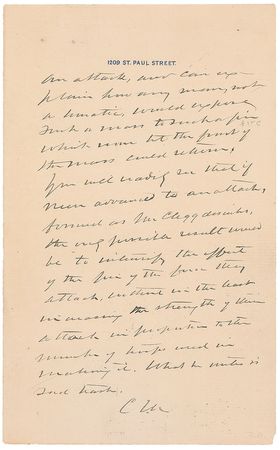 1209 ST. PAUL STREET.
an attack, and can ex-
plain how any man, not
a lunatic, would expose
such a mass to such a fire
which none but the front of
the mass could return.
You will readily see that if
men advanced to an attack,
formed as McClegg describes,
the only possible result would
be to intensify the effect
of the fire of the force they
attack, without in the least
increasing the strength of their
attack in proportion to the
number of troops used in
making it. What he writes is
sad trash.
C M